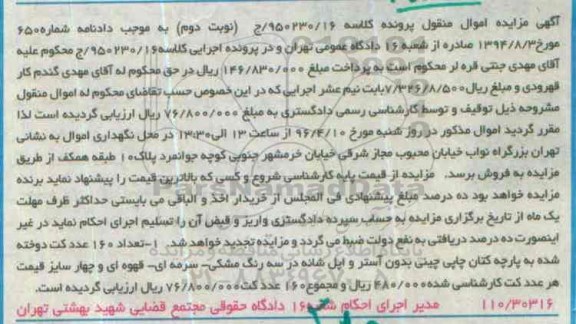 آگهی مزایده اموال منقول پرونده کلاسه ۹۵۰۲۳۰/۱۶/ج (نوبت دوم) به موجب دادنامه شماره۶۵۰
مورخ۱۳۹۴/۸/۳ صادره از شعبه ۱۶ دادگاه عمومی تهران و در پرونده اجرایی کلاسه۹۵۰۲۳۰/۱۶/ج محکوم علیه
آقای مهدی جنتی قره لر محکوم است به پرداخت مبلغ ۱۴۶/۸۳۰/۰۰۰ ریال در حق محکوم له آقای مهدی گندم کار
قهرودی و مبلغ ریال۷/۳۴۶/۸/۵۰۰بابت نیم عشر اجرایی که در این خصوص حسب تقاضای محکوم له اموال منقول
مشروحه ذیل توقیف و توسط کارشناس رسمی دادگستری به مبلغ ۷۶/۸۰۰/۰۰۰ ریال ارزیابی گردیده است لذا
مقرر گردید اموال مذکور در روز شنبه مورخ ۹۶/۴/۱۰ از ساعت ۱۳ الی۱۳:۳۰ در محل نگهداری اموال به نشانی
تهران بزرگراه نواب خیابان محبوب مجاز شرقی خیابان خرمشهر جنوبی کوچه جوانمرد پلاک۱۰ طبقه همکف از طریق
مزایده به فروش برسد. مزایده از قیمت پایه کارشناسی شروع و کسی که بالاترین قیمت را پیشنهاد نماید برنده
مزایده خواهد بود ده درصد مبلغ پیشنهادی فی المجلس از خریدار اخذ و الباقی می بایستی حداکثر ظرف مهلت
یک ماه از تاریخ برگزاری مزایده به حساب سپرده دادگستری واریز و قبض آن را تسلیم اجرای احکام نماید در غیر
اینصورت ده درصد دریافتی به نفع دولت ضبط می گردد و مزایده تجدید خواهد شد. ۱-تعداد ۱۶۰ عدد کت دوخته
شده به پارچه کتان چاپی چینی بدون آستر و اپل شانه در سه رنگ مشکی- سرمه ای- قهوه ای و چهار سایز قیمت
هر عدد کت کارشناسی شده۴۸۰/۰۰۰ ریال و مجموع۱۶۰ عدد کت۷۶/۸۰۰/۰۰۰ ریال ارزیابی گردیده است.
۱۱۰/۳۰۳۱۶ مدیر اجرای احکام شعبه۱۶ دادگاه حقوقی مجتمع قضایی شهید بهشتی تهران